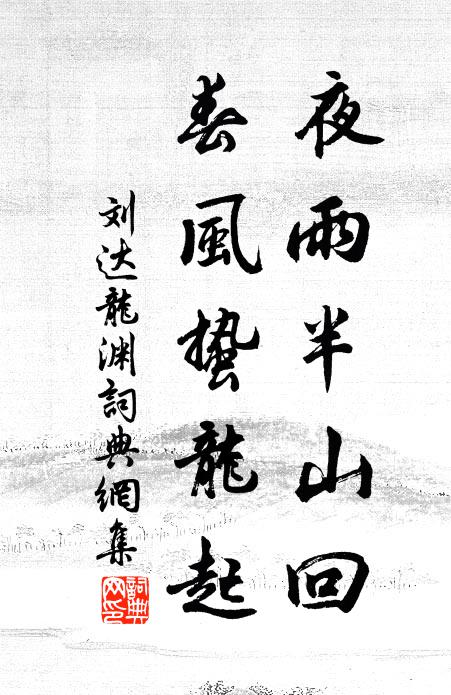 夜雨半山回
春風蟄龍起
刘达龍渊詞典網集
詞典网印